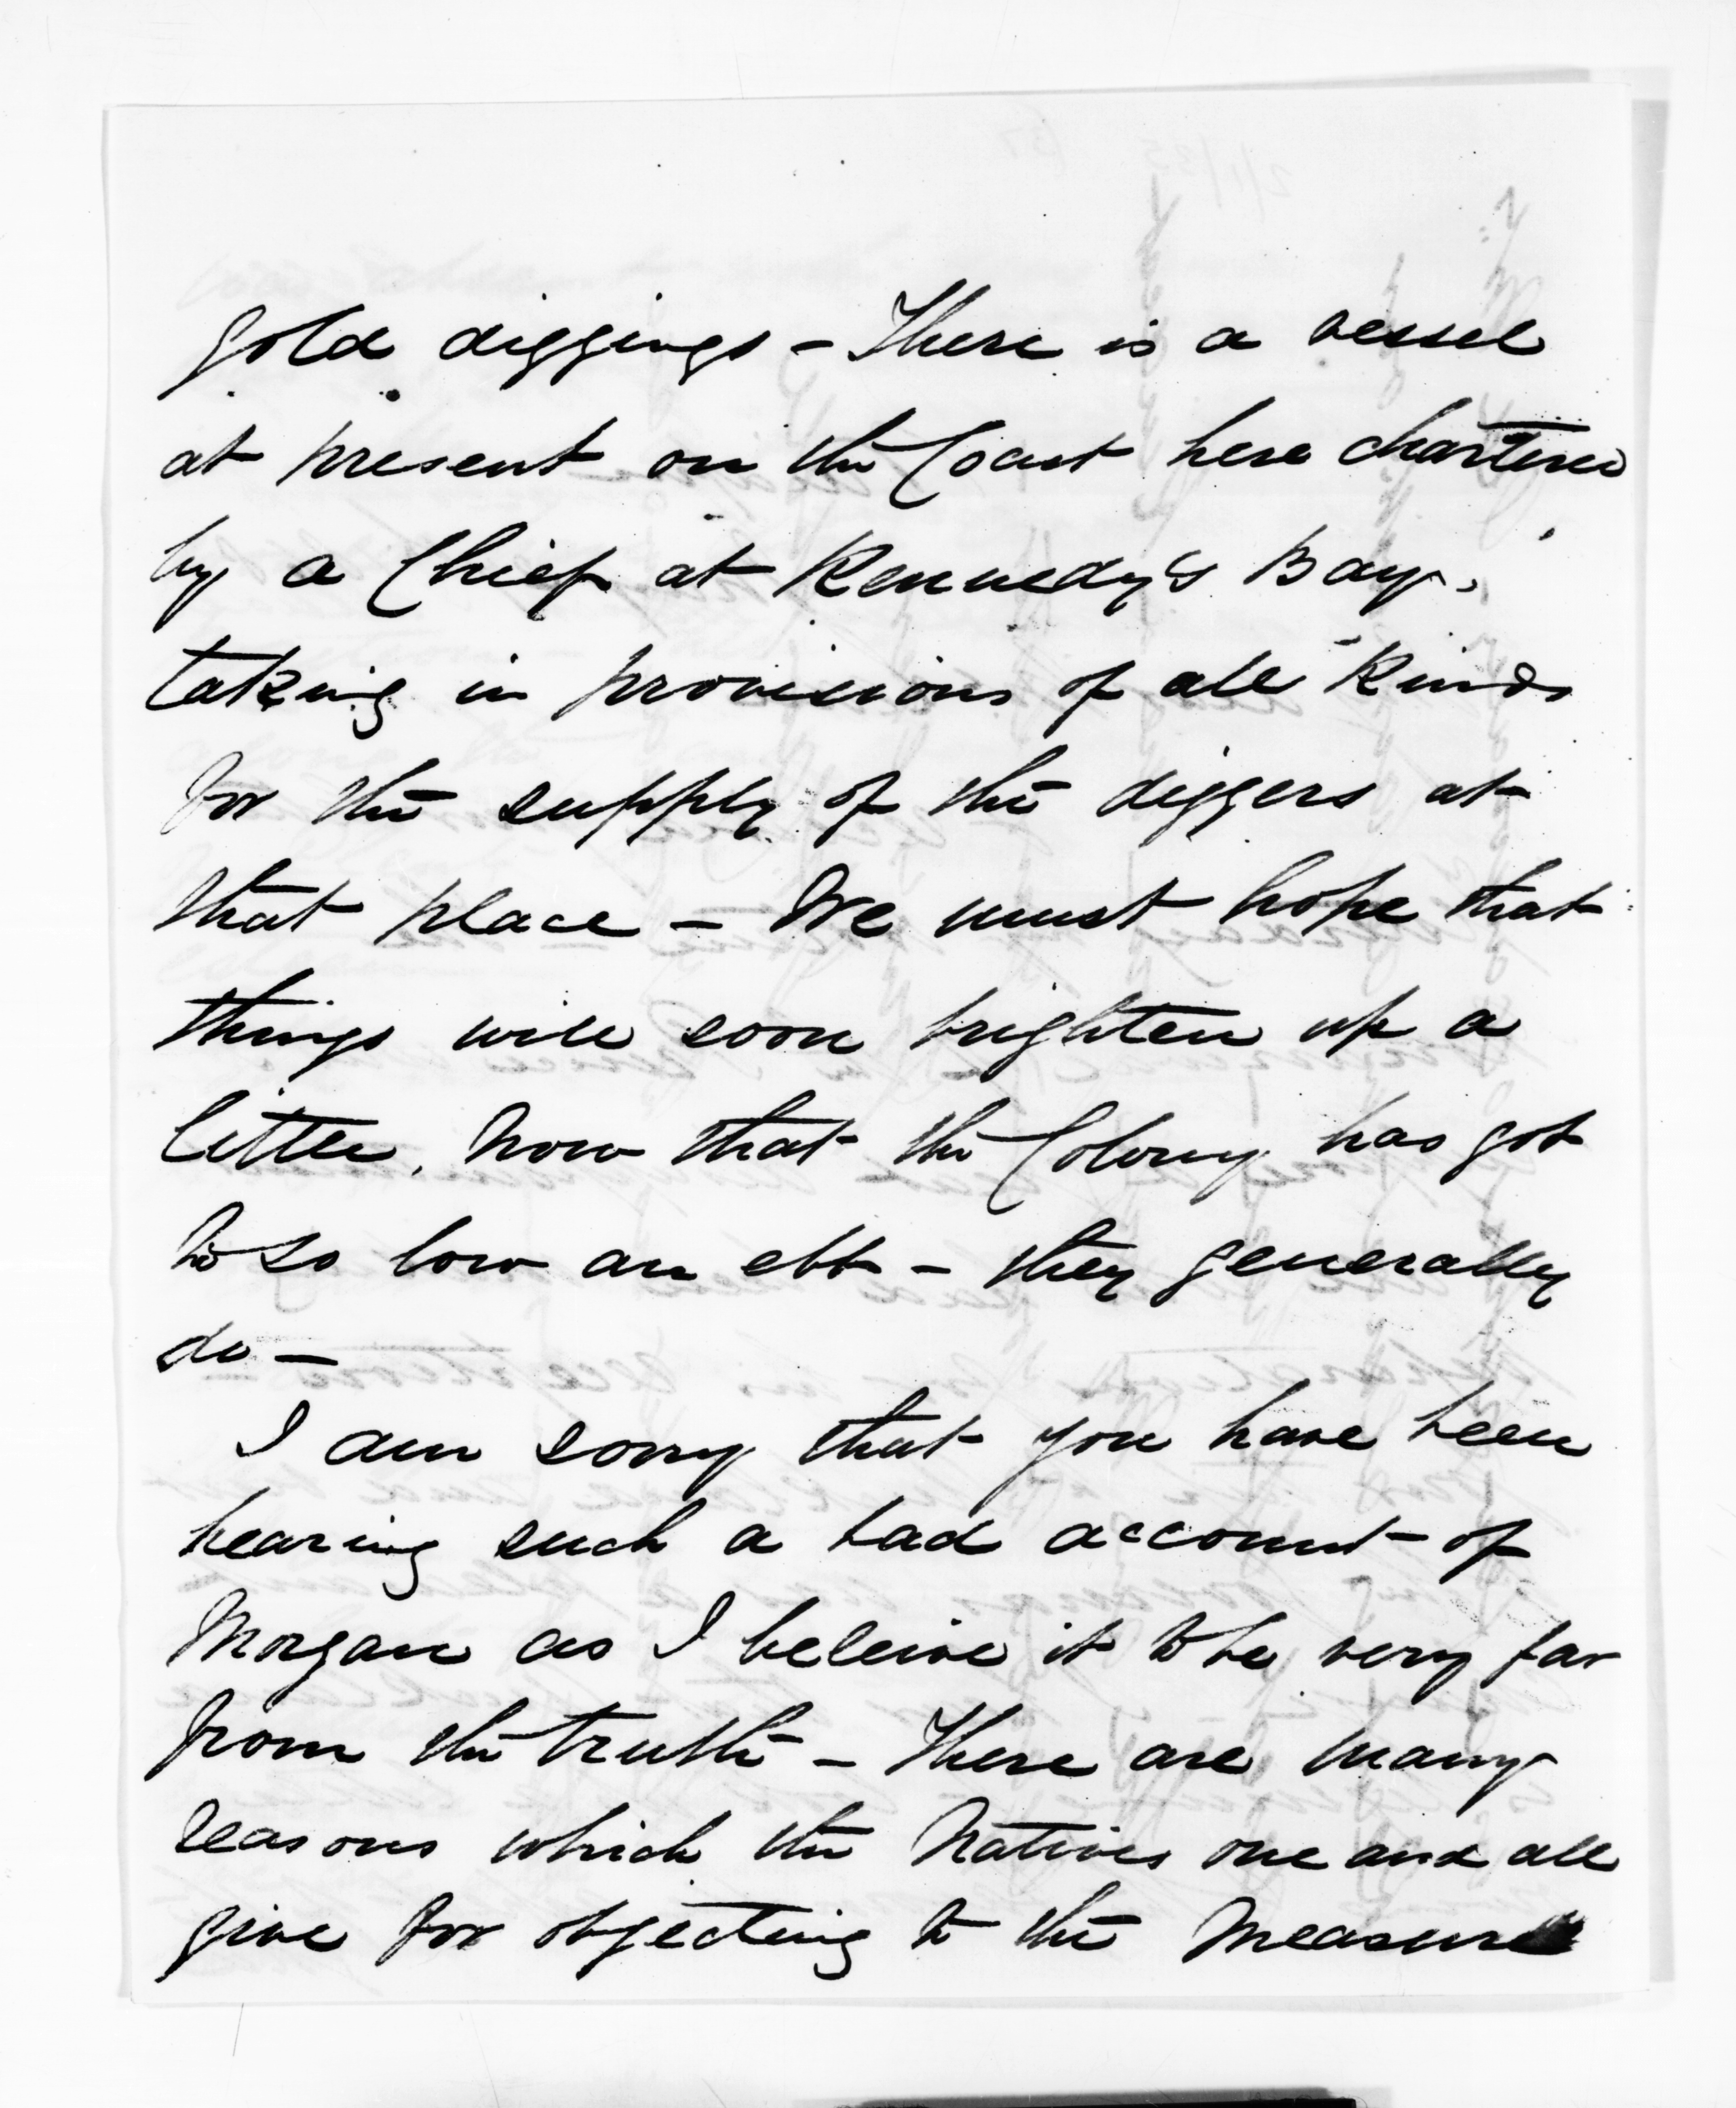 gold diggings – There is a vessel
at present on the Coast here chartered
by a Chief at Kennedy's Bay,
taking in provisions of all kinds
for the supply of the diggers at
that place – We must hope that
things will soon brighten up a
little, now that the Colony has got
to so low an ebb – they generally
do –
I am sorry that you have been
hearing such a bad account of
Morgan as I beleive it to be very far
from the truth – There are many
reasons which the Natives one and all
give for objecting to the measure